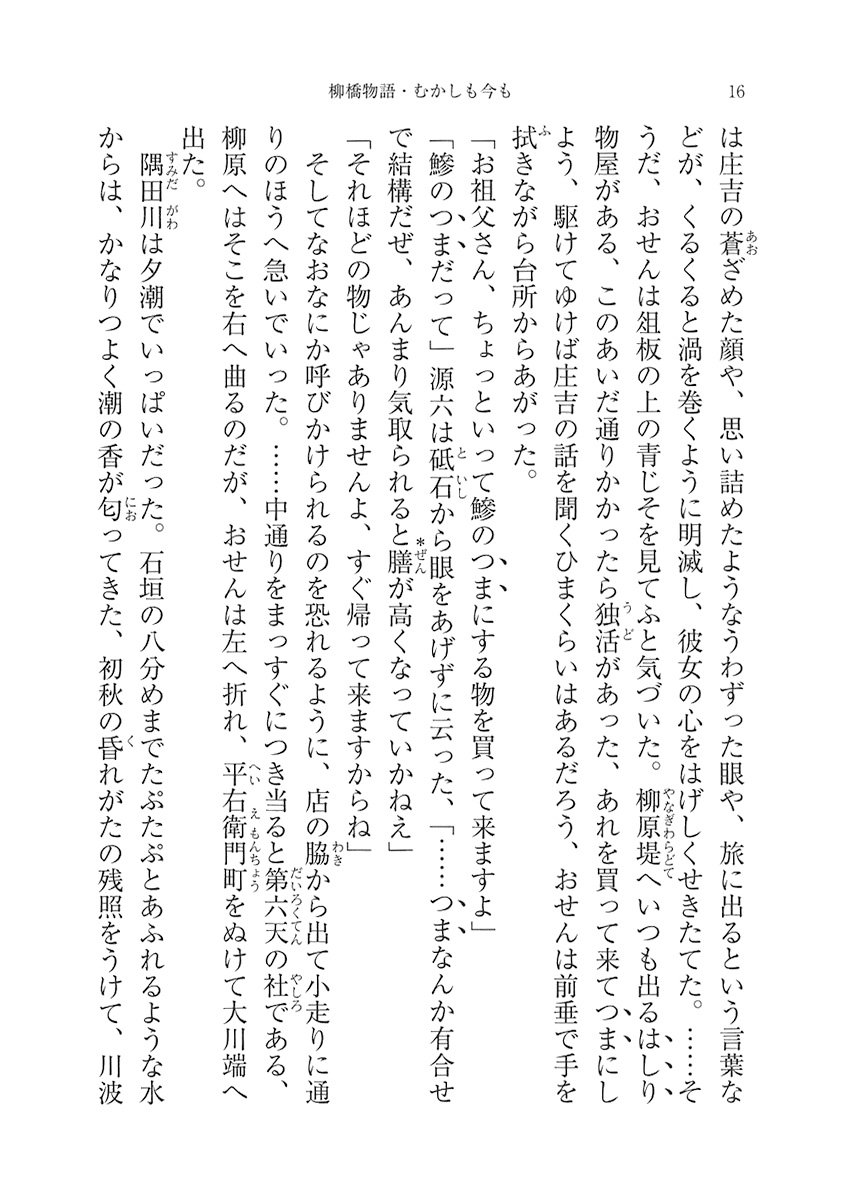 柳橋物語・むかしも今も
16
は庄吉の蒼ざめた顔や、思い詰めたようなうわずった眼や、旅に出るという言葉な
どが、くるくると渦を巻くように明滅し、彼女の心をはげしくせきたてた。……そ
うだ、おせんは俎板の上の青じそを見てふと気づいた。柳原堤へいつも出るはしり
物屋がある、このあいだ通りかかったら独活があった、あれを買って来てつまにし
よう、駆けてゆけば庄吉の話を聞くひまくらいはあるだろう、おせんは前垂で手を
拭きながら台所からあがった。
「お祖父さん、ちょっといって鰺のつまにする物を買って来ますよ」
「鰺のつまだって」源六は砥石から眼をあげずに云った、「……つまなんか有合せ
で結構だぜ、あんまり気取られると膳が高くなっていかねえ」
「それほどの物じゃありませんよ、すぐ帰って来ますからね」
そしてなおなにか呼びかけられるのを恐れるように、店の脇から出て小走りに通
りのほうへ急いでいった。……中通りをまっすぐにつき当ると第六天の社である、
柳原へはそこを右へ曲るのだが、おせんは左へ折れ、平右衛門町をぬけて大川端へ
出た。
隅田川は夕潮でいっぱいだった。石垣の八分めまでたぷたぷとあふれるような水
からは、かなりつよく潮の香が匂ってきた、初秋の昏れがたの残照をうけて、川波